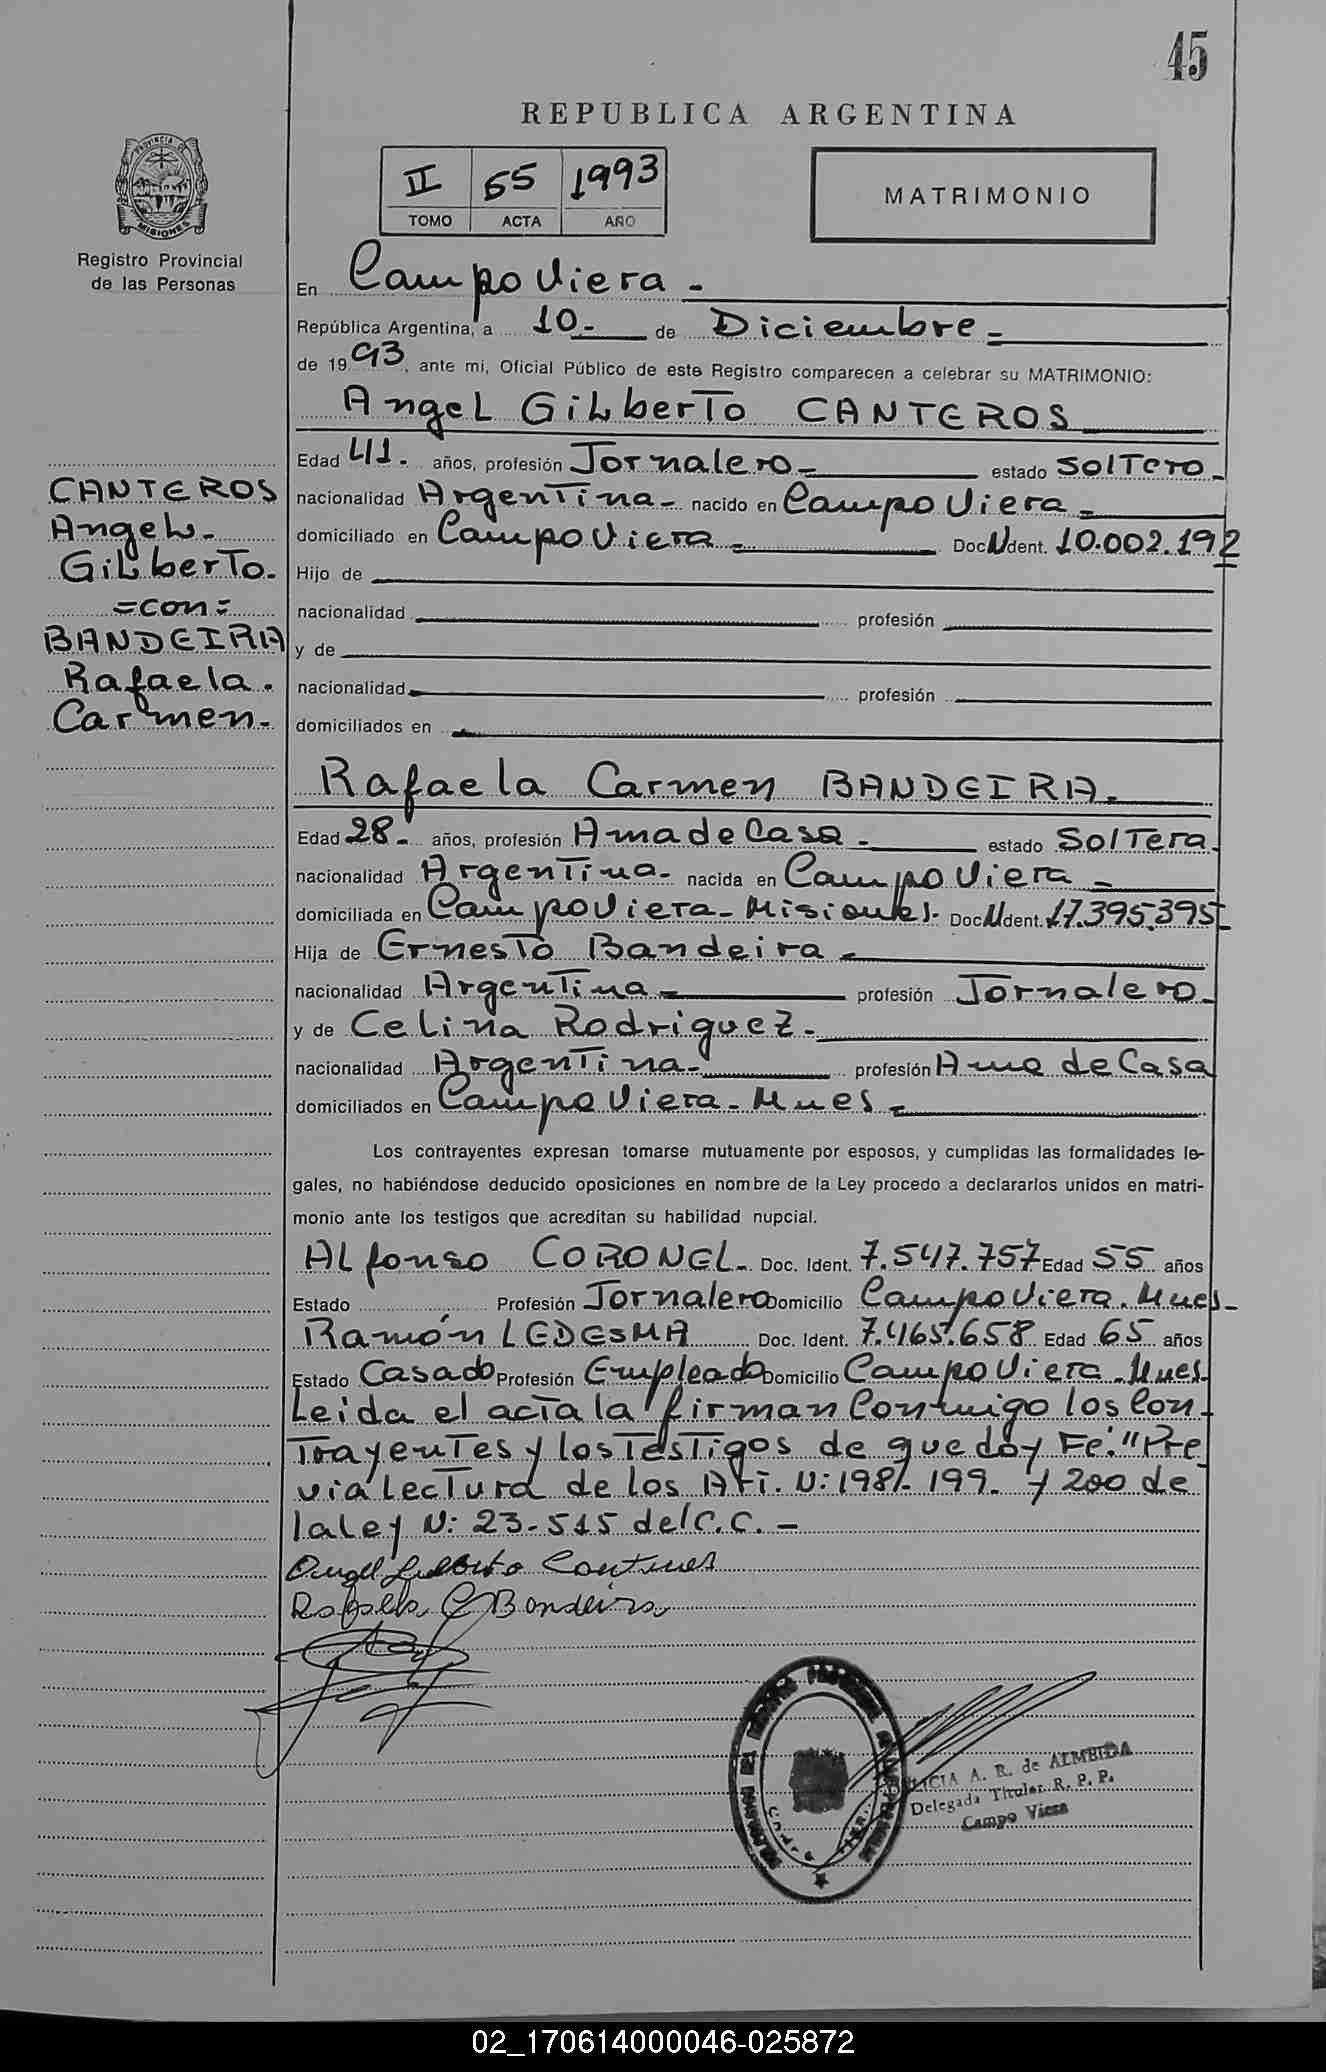 45
REPUBLICA ARGENTINA
II 55 1993
TOMO ACTA AÑO
MATRIMONIO
PROVINCIA DE
MISIONES
Registro Provincial
de las Personas
En Campo Viera -
República Argentina, a 10.- de Diciembre -
de 1993, ante mi, Oficial Público de este Registro comparecen a celebrar su MATRIMONIO:
Angel Gilberto CANTEROS
Edad 41.- años, profesión Jornalero - estado Soltero -
nacionalidad Argentina - nacido en Campo Viera -
domiciliado en Campo Viera - Doc. Ident. 10.002.192
Hijo de
nacionalidad profesión
y de
nacionalidad profesión
domiciliados en
CANTEROS
Angel.
Gilberto.
=con=
BANDEIRA
Rafaela.
Carmen.
Rafaela Carmen BANDEIRA.
Edad 28.- años, profesión Ama de Casa - estado Soltera.
nacionalidad Argentina - nacida en Campo Viera -
domiciliada en Campo Viera - Misiones. Doc. Ident. 17.395.395
Hija de Ernesto Bandeira -
nacionalidad Argentina - profesión Jornalero -
y de Celina Rodriguez.-
nacionalidad Argentina - profesión Ama de Casa
domiciliados en Campo Viera - Mnes -
Los contrayentes expresan tomarse mutuamente por esposos, y cumplidas las formalidades le-
gales, no habiéndose deducido oposiciones en nombre de la Ley procedo a declararlos unidos en matri-
monio ante los testigos que acreditan su habilidad nupcial.
Alfonso CORONEL - Doc. Ident. 7.547.757 Edad 55 años
Estado Profesión Jornalero Domicilio Campo Viera. Mnes -
Ramón LEDESMA Doc. Ident. 7.465.658 Edad 65 años
Estado Casado Profesión Empleado Domicilio Campo Viera - Mnes.
Leida el acta la firman Conmigo los Con-
Trayentes y los Testigos de que doy Fe: "Pre
via lectura de los Art. N: 198 - 199 - y 200 de
la ley N: 23-515 del C.C. -
Angel Gilberto Canteros
Rafaela C Bandeira
LICIA A. R. de ALMEIDA
Delegada Titular R. P. P.
Campo Viera
02_170614000046-025872